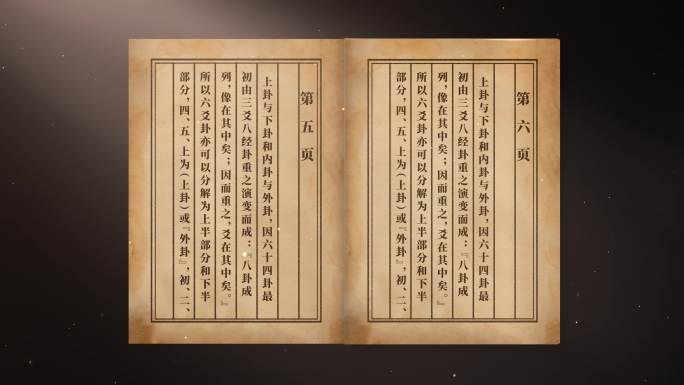 第六页
上卦与下卦和内卦与外卦，因六十四卦最
初由三爻八经卦重之演变而成：『八卦成
列，像在其中矣；因而重之，爻在其中矣。』
所以六爻卦亦可以分解为上半部分和下半
部分，四、五、上为(上卦)或『外卦』，初、二、
第五页
上卦与下卦和内卦与外卦，因六十四卦最
初由三爻八经卦重之演变而成：『八卦成
列，像在其中矣；因而重之，爻在其中矣。』
所以六爻卦亦可以分解为上半部分和下半
部分，四、五、上为(上卦)或『外卦』，初、二、